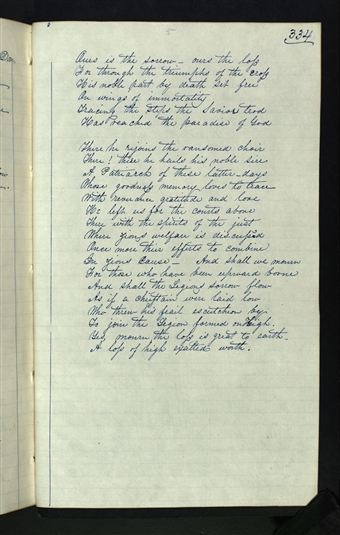 334
Ours is the sorrow — ours the loss
For through the triumphs of the cross
His noble part by death set free
On wings of immortality
Tracing the steps the Savior trod
Has reached the paradise of God

There he rejoins the ransomed choir
There! there he hails his noble sire
A Patriarch of these latter-days
Whose goodness memory loves to trace
With reverence gratitude and love
He left us for the courts above
There with the spirits of the just
Where Zion's welfare is discussed
Once more their efforts to combine
In Zion's cause — And shall we mourn
For those who have been upward borne
And shall the Legions sorrow flow
As if a chieftain were laid low
Who threw his frail escutcheon by
To join the Legion formed on high.
Yes, mourn the loss is great to earth.
A loss of high exalted worth.